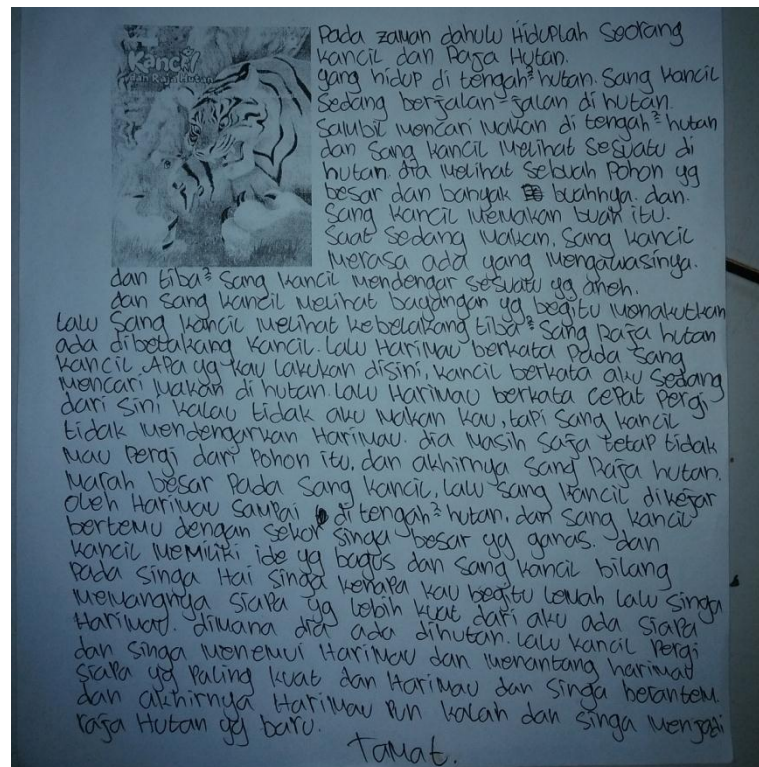 Kancil
dan Raja Hutan
Pada zaman dahulu Hiduplah Seorang
kancil dan Raja Hutan.
yang hidup di tengah² hutan. Sang kancil
Sedang berjalan-jalan di hutan.
Salubil mencari makan di tengah² hutan
dan Sang kancil Melihat Sesuatu di
hutan. dia Melihat Sebuah Pohon yg
besar dan banyak buahnya. dan.
Sang kancil Memakan buah itu.
Saat Sedang Makan, Sang kancil
Merasa ada yang Mengawasinya.
dan tiba² Sang kancil mendengar sesuatu yg aneh.
dan Sang kancil Melihat bayangan yg begitu Menakutkan
Lalu Sang kancil Melihat kebelakang tiba² Sang Raja hutan
ada dibelakang kancil. Lalu Harimau berkata Pada Sang
kancil, Apa yg kau Lakukan disini, kancil berkata aku Sedang
Mencari Makan di hutan. Lalu Harimau berkata cepat Pergi
dari Sini kalau tidak aku Makan kau, tapi Sang kancil
tidak Mendengarkan Harimau. dia Masih Saja tetap tidak
Mau Pergi dari Pohon itu, dan akhirnya Sang Raja hutan.
Marah besar Pada Sang kancil, Lalu Sang kancil dikejar
oleh Harimau Sampai di tengah² hutan, dan Sang kancil
bertemu dengan sekor Singa besar yg ganas. dan
kancil Memiliki ide yg bagus dan Sang kancil bilang
Pada Singa Hai Singa kenapa kau begitu Lemah Lalu Singa
Memangnya Siapa yg Lebih kuat dari aku ada Siapa
Harimau. dimana dia ada dihutan. Lalu kancil Pergi
dan Singa Menemui Harimau dan Menantang harimau
Siapa yg Paling kuat dan Harimau dan Singa berantem.
dan akhirnya Harimau Pun kalah dan Singa Menjadi
raja Hutan yg baru.
Tamat.